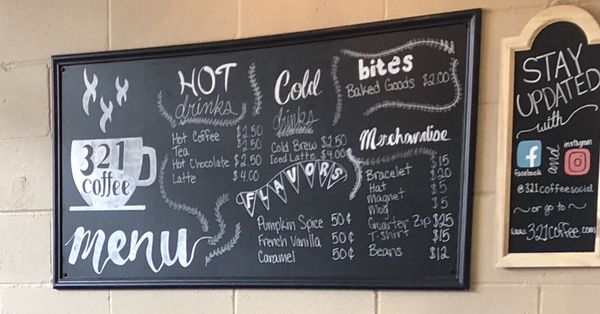 321
coffee
menu
HOT
drinks
Hot Coffee $2.50
Tea $2.50
Hot Chocolate $2.50
Latte $4.00
Cold
drinks
Cold Brew $2.50
Iced Latte $4.00
FLAVORS
Pumpkin Spice 50¢
French Vanilla 50¢
Caramel 50¢
bites
Baked Goods $2.00
Merchandise
Bracelet $15
Hat $20
Magnet $5
Mug $15
Quarter Zip $25
T-Shirt $15
Beans $12
STAY
UPDATED
with
Facebook and instagram
@321coffeesocial
or go to
www.321coffee.com